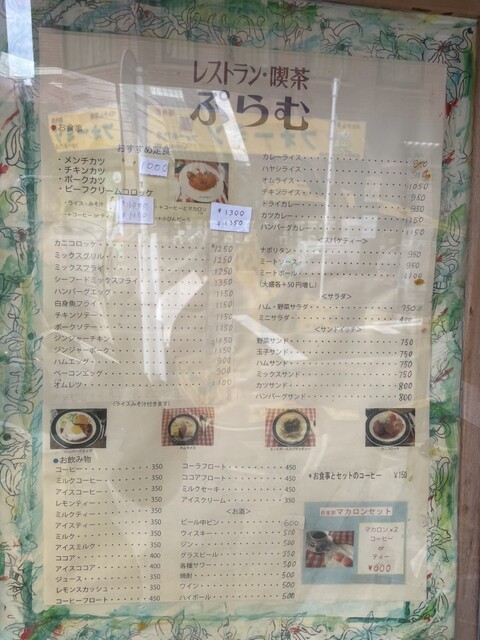 レストラン・喫茶
ぷらむ
●お食事
おすすめ定食
・メンチカツ
・チキンカツ
・ポークカツ
・ビーフクリームコロッケ
¥1000
¥1300
¥1350
カニコロッケ 1250
ミックスグリル 1250
ミックスフライ 1250
シーフードミックスフライ 1350
ハンバーグエッグ 1150
白身魚フライ 1150
チキンソテー 1150
ポークソテー 1150
ジンジャーチキン 1150
ジンジャーポーク 1150
ハムエッグ
ベーコンエッグ
オムレツ 1100
(ライスみそ汁付きます)
カレーライス
ハヤシライス
オムライス 1050
チキンライス 950
ドライカレー 950
カツカレー
ハンバーグカレー
<スパゲティー>
ナポリタン 950
ミートソース 950
ミートボール 1100
(大盛各+50円増し)
<サラダ>
ハム・野菜サラダ 750
ミニサラダ
<サンドイッチ>
野菜サンド 750
玉子サンド 750
ハムサンド 750
ミックスサンド 750
カツサンド 800
ハンバーグサンド 800
●お飲み物
コーヒー 350
ミルクコーヒー 350
アイスコーヒー 350
レモンティー 350
ミルクティー 350
アイスティー 350
ミルク 350
アイスミルク 350
ココア 400
アイスココア 400
ジュース 350
レモンスカッシュ 350
コーヒーフロート 450
コーラフロート 450
ココアフロート 450
ミルクセーキ 450
アイスクリーム 350
<お酒>
ビール中ビン 600
ウィスキー
ジン
グラスビール 350
各種サワー 500
焼酎 500
ワイン 500
ハイボール 500
*お食事とセットのコーヒー ¥150
自家製マカロンセット
マカロン×2
コーヒー
or
ティー
¥600